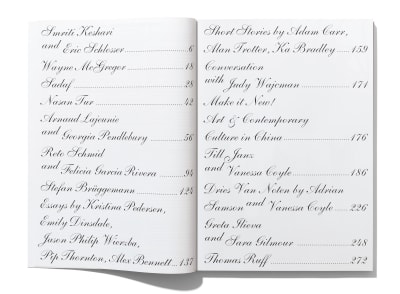 Smriti Keshari
and Eric Schlosser 6
Wayne McGregor 18
Sadaf 28
Nasan Tur 42
Arnaud Lajeunie
and Georgia Pendlebury 56
Reto Schmid
and Felicia Garcia Rivera 94
Stefan Brüggemann 124
Essays by Kristina Pedersen,
Emily Dinsdale,
Jason Philip Wierzba,
Pip Thornton, Alex Bennett 137
Short Stories by Adam Carr,
Alan Trotter, Ka Bradley 159
Conversation
with Judy Wajcman 171
Make it New!
Art & Contemporary
Culture in China 176
Till Janz
and Vanessa Coyle 186
Dries Van Noten by Adrian
Samson and Vanessa Coyle 226
Greta Ilieva
and Sara Gilmour 248
Thomas Ruff 272